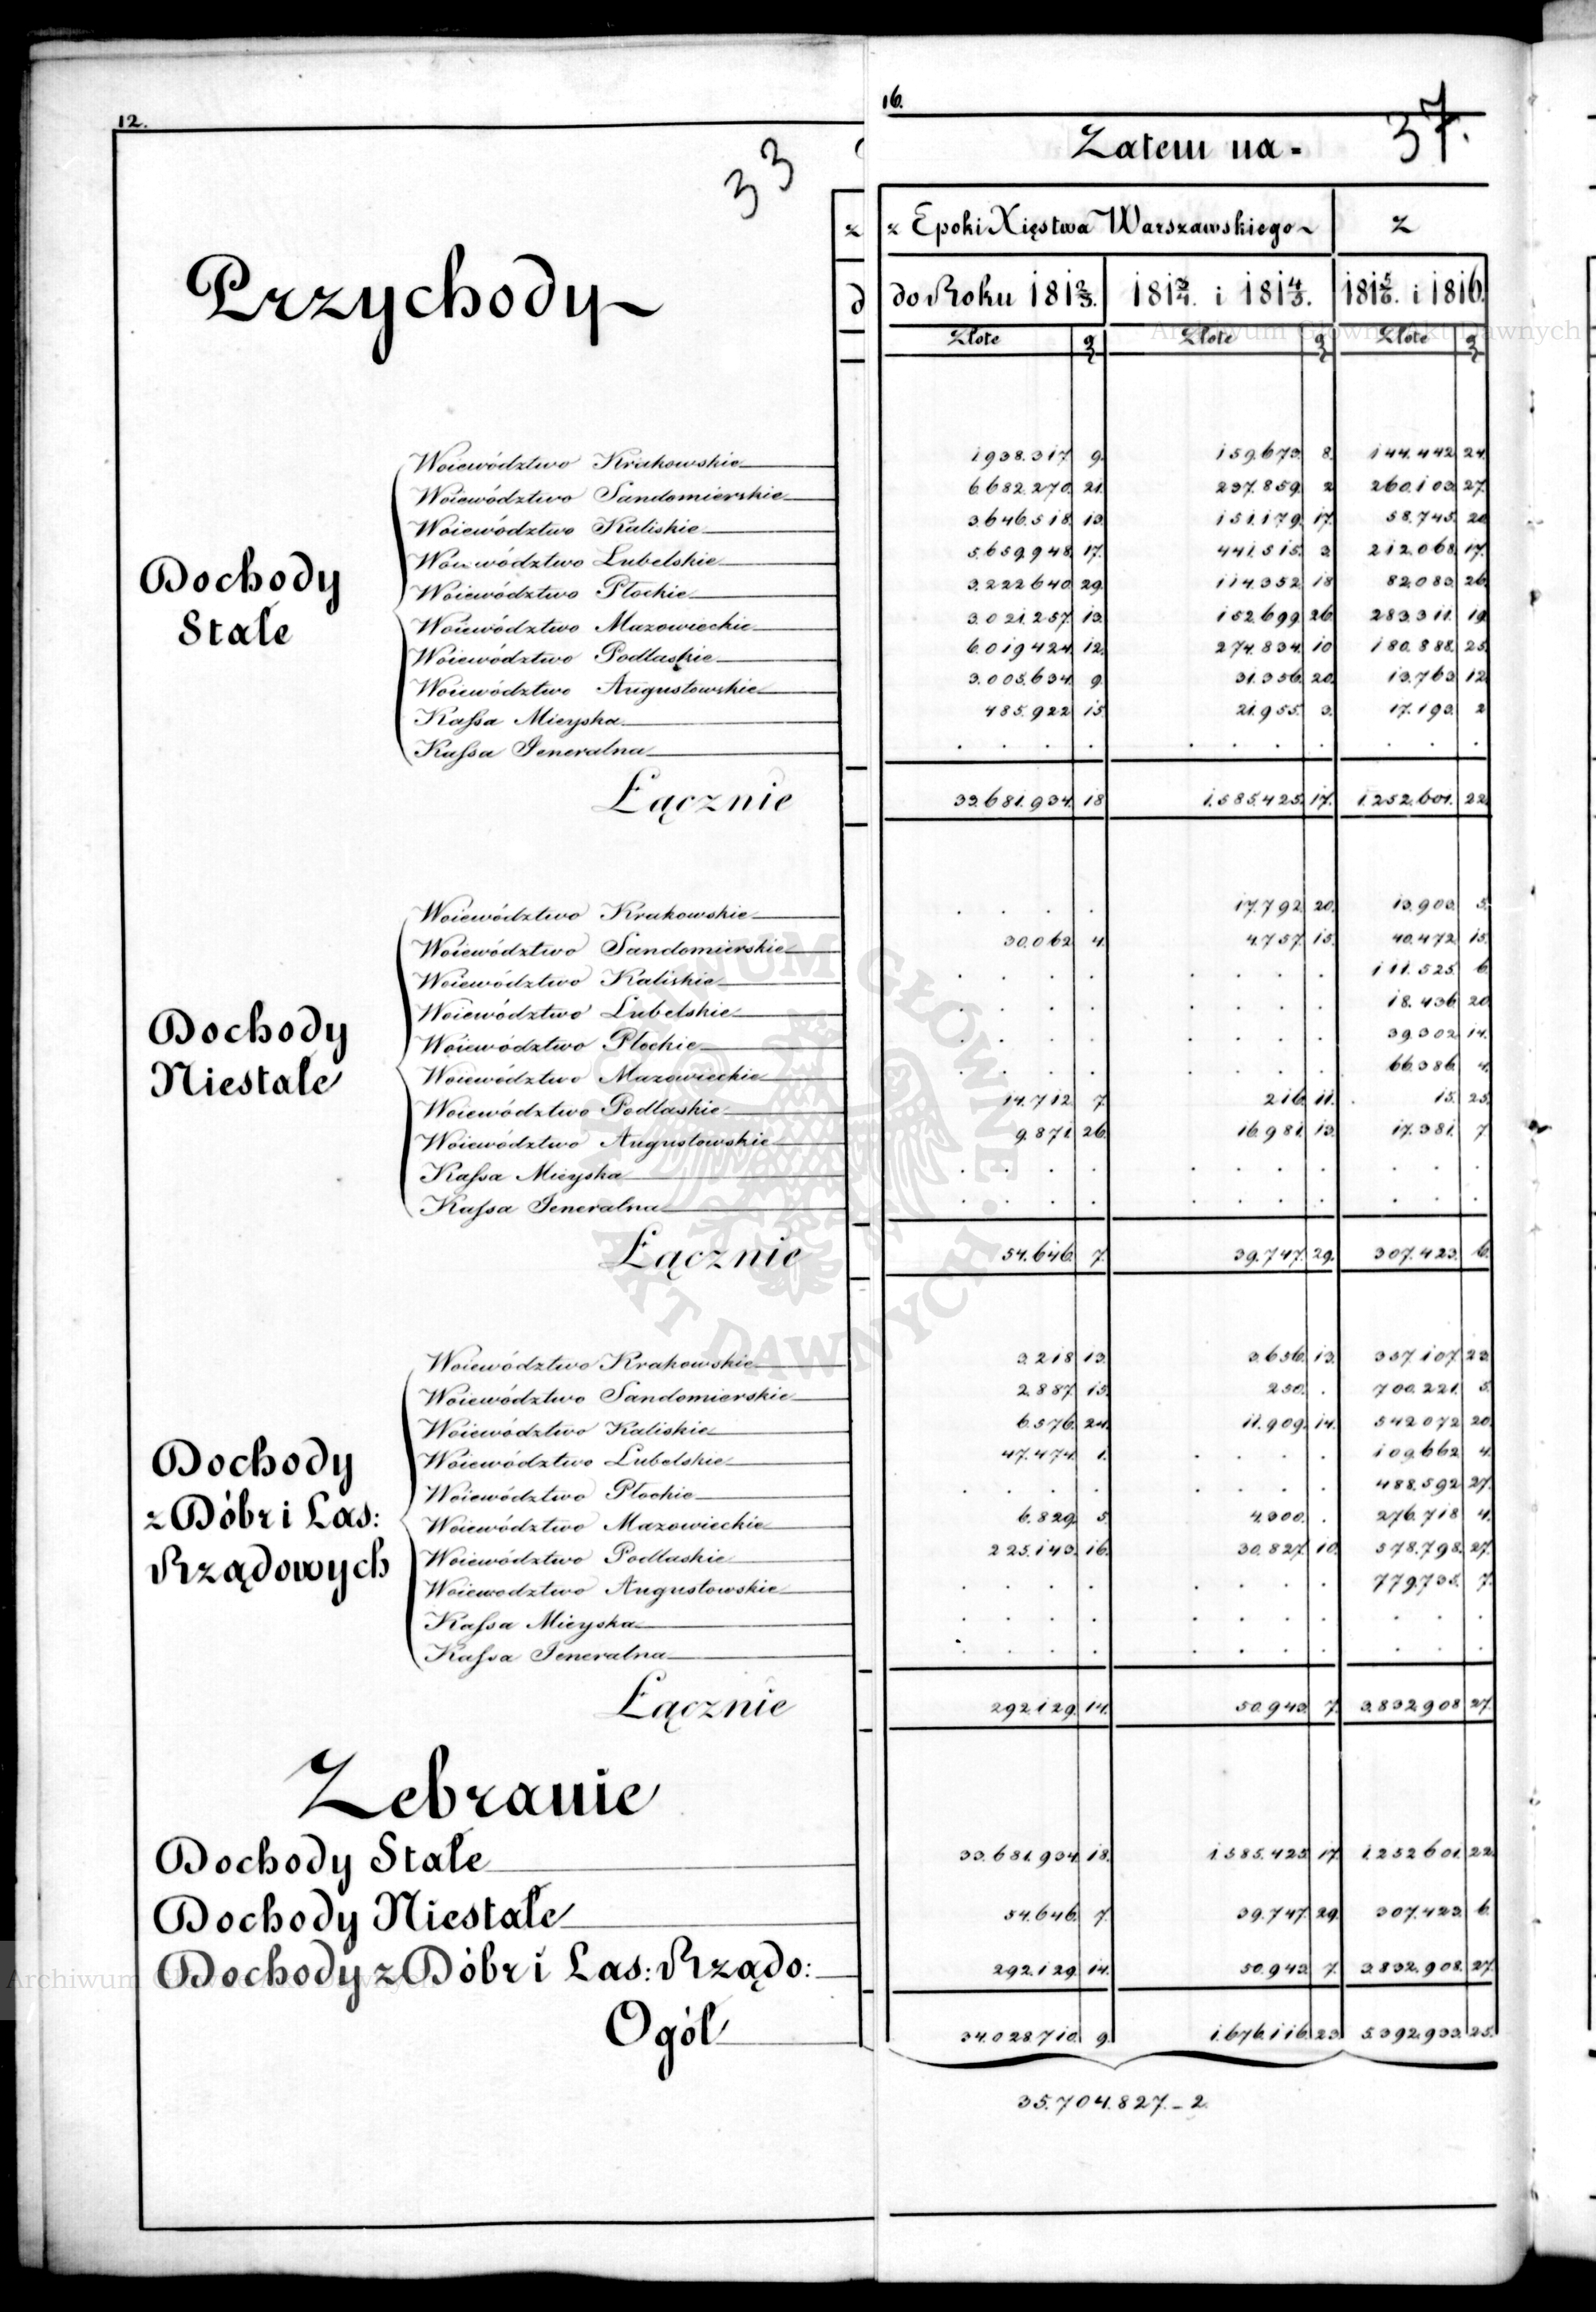 12.
33
16.
37.
Zatem na=
Przychody
z
z Epoki Xięstwa Warszawskiego
z
d
do Roku 181 2/3.
181 3/4. i 181 4/5.
181 5/6. i 1816.
Złote g Złote g Złote g
Dochody
Stałe
Woiewództwo Krakowskie 1938.317 9. 159.673. 8. 144.442 24
Woiewództwo Sandomierskie 6.682.270. 21. 237.859. 2 260.103. 27.
Woiewództwo Kaliskie 3.646.518. 13. 151.179. 17. 58.745. 20
Woiewództwo Lubelskie 5.659.948. 17. 441.515. 3. 212.068. 17.
Woiewództwo Płockie 3.222.640 29. 114.352 18 82.083. 26.
Woiewództwo Mazowieckie 3.021.257. 13. 152.699. 26. 283.311. 19.
Woiewództwo Podlaskie 6.019.424. 12. 274.834. 10 180.888. 25.
Woiewództwo Augustowskie 3.005.634. 9. 31.356. 20. 13.763 12
Kassa Mieyska 485.922 15 21.955. 3. 17.193. 2
Kassa Jeneralna . . . . . . . . . . .
Łącznie 33.681.934. 18 1.585.425. 17. 1.252.601. 22.
Dochody
Niestałe
Woiewództwo Krakowskie . . . . 17.792. 20. 13.903. 5.
Woiewództwo Sandomierskie 30.062 4. 4.757. 15. 40.472. 15.
Woiewództwo Kaliskie . . . . . . . . 111.525. 6.
Woiewództwo Lubelskie . . . . . . . . 18.436 20
Woiewództwo Płockie . . . . . . . . 39.302 14.
Woiewództwo Mazowieckie . . . . . . . . 66.386 4.
Woiewództwo Podlaskie 14.712 7. 216. 11. . 15. 25.
Woiewództwo Augustowskie 9.871. 26. 16.981. 13. 17.381. 7
Kassa Mieyska . . . . . . . . . . .
Kassa Jeneralna . . . . . . . . . . .
Łącznie 54.646. 7. 39.747. 29. 307.423. 6.
Dochody
z Dóbr i Las:
Rządowych
Woiewództwo Krakowskie 3.218 13. 3.656. 13. 357.107 23.
Woiewództwo Sandomierskie 2.887. 15. 250. . 700.221. 5.
Woiewództwo Kaliskie 6.576. 24. 11.909. 14. 542.072 20.
Woiewództwo Lubelskie 47.474. 1. . . . . 109.662 4.
Woiewództwo Płockie . . . . . . . . 488.592 27.
Woiewództwo Mazowieckie 6.829. 5 4.300. . 276.718 4.
Woiewództwo Podlaskie 225.143. 16. 30.827. 10. 578.798. 27.
Woiewodztwo Augustowskie . . . . . . . . 779.735. 7.
Kassa Mieyska . . . . . . . . . . .
Kassa Jeneralna . . . . . . . . . . .
Łącznie 292.129. 14. 50.943. 7. 3.832.908 27.
Zebranie
Dochody Stałe 33.681.934. 18. 1.585.425 17. 1.252.601. 22.
Dochody Niestałe 54.646. 7. 39.747. 29. 307.423. 6.
Dochody z Dóbr i Las: Rządo: 292.129. 14. 50.943. 7. 3.832.908. 27.
Ogół 34.028.710. 9. 1.676.116. 23 5.392.933. 25.
35.704.827.-2.
Archiwum Główne Akt Dawnych
ARCHIWUM GŁÓWNE AKT DAWNYCH
Archiwum Główne Akt Dawnych